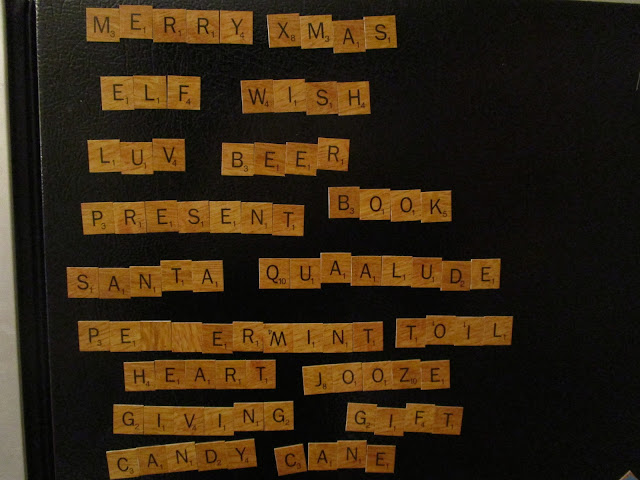 MERRY XMAS
ELF WISH
LUV BEER
PRESENT BOOK
SANTA QUAALUDE
PE  ERMINT TOIL
HEART JOOZE
GIVING GIFT
CANDY CANE